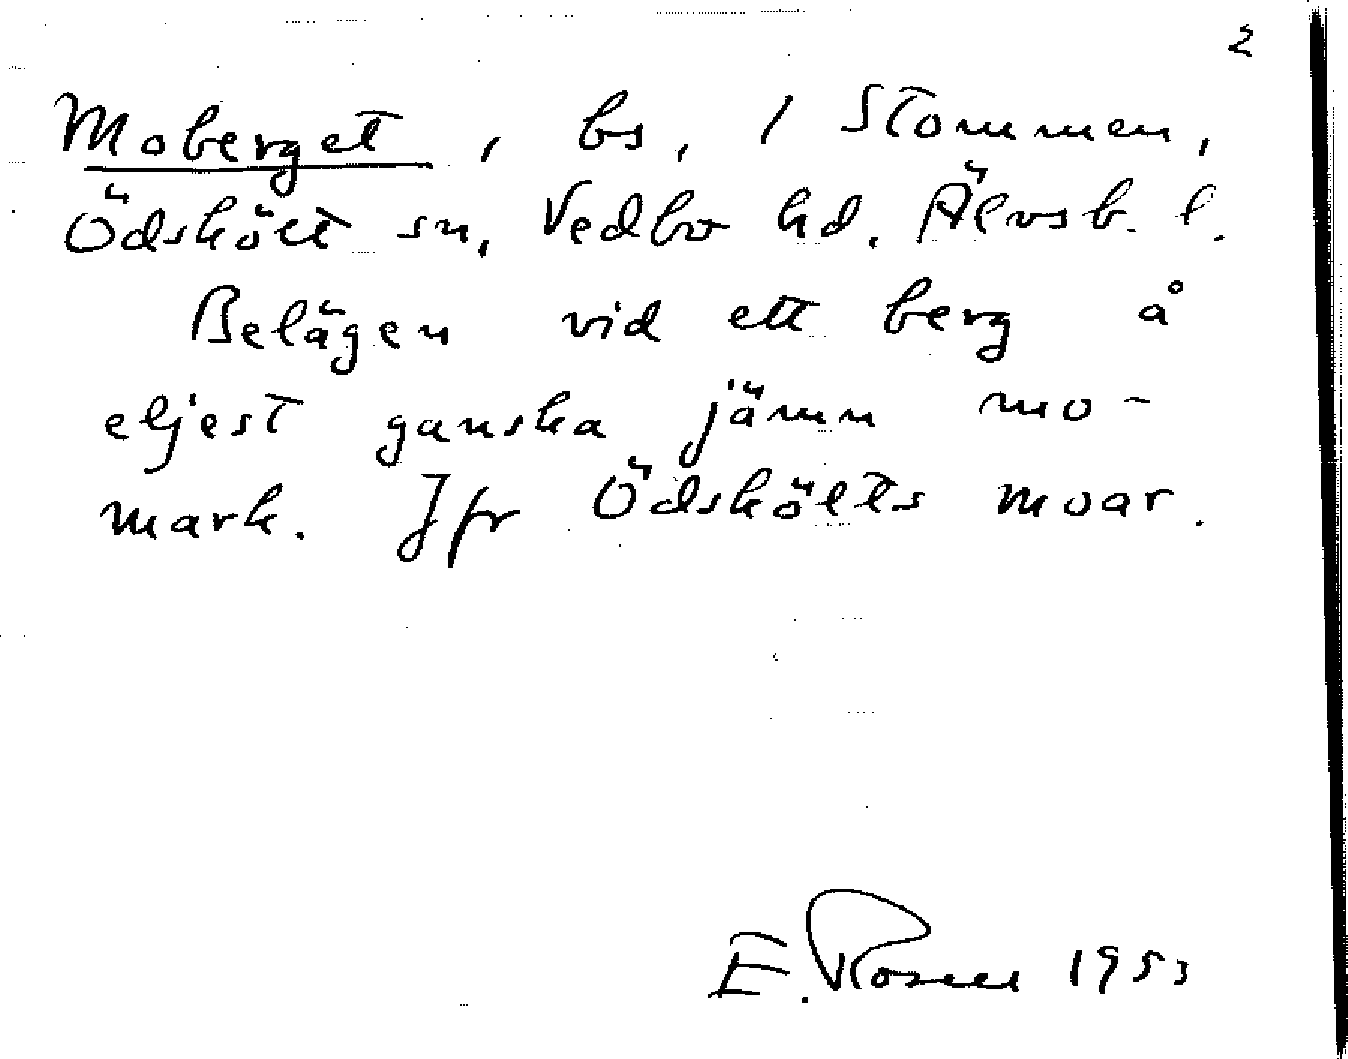 2
Moberget, bs, / Stommen,
Ödskölt sn, Vedbo hd. Älvsb. l.
Belägen vid ett berg å
eljest ganska jämn mo-
mark. Jfr Ödskölts moar.
E. Rosell 1953